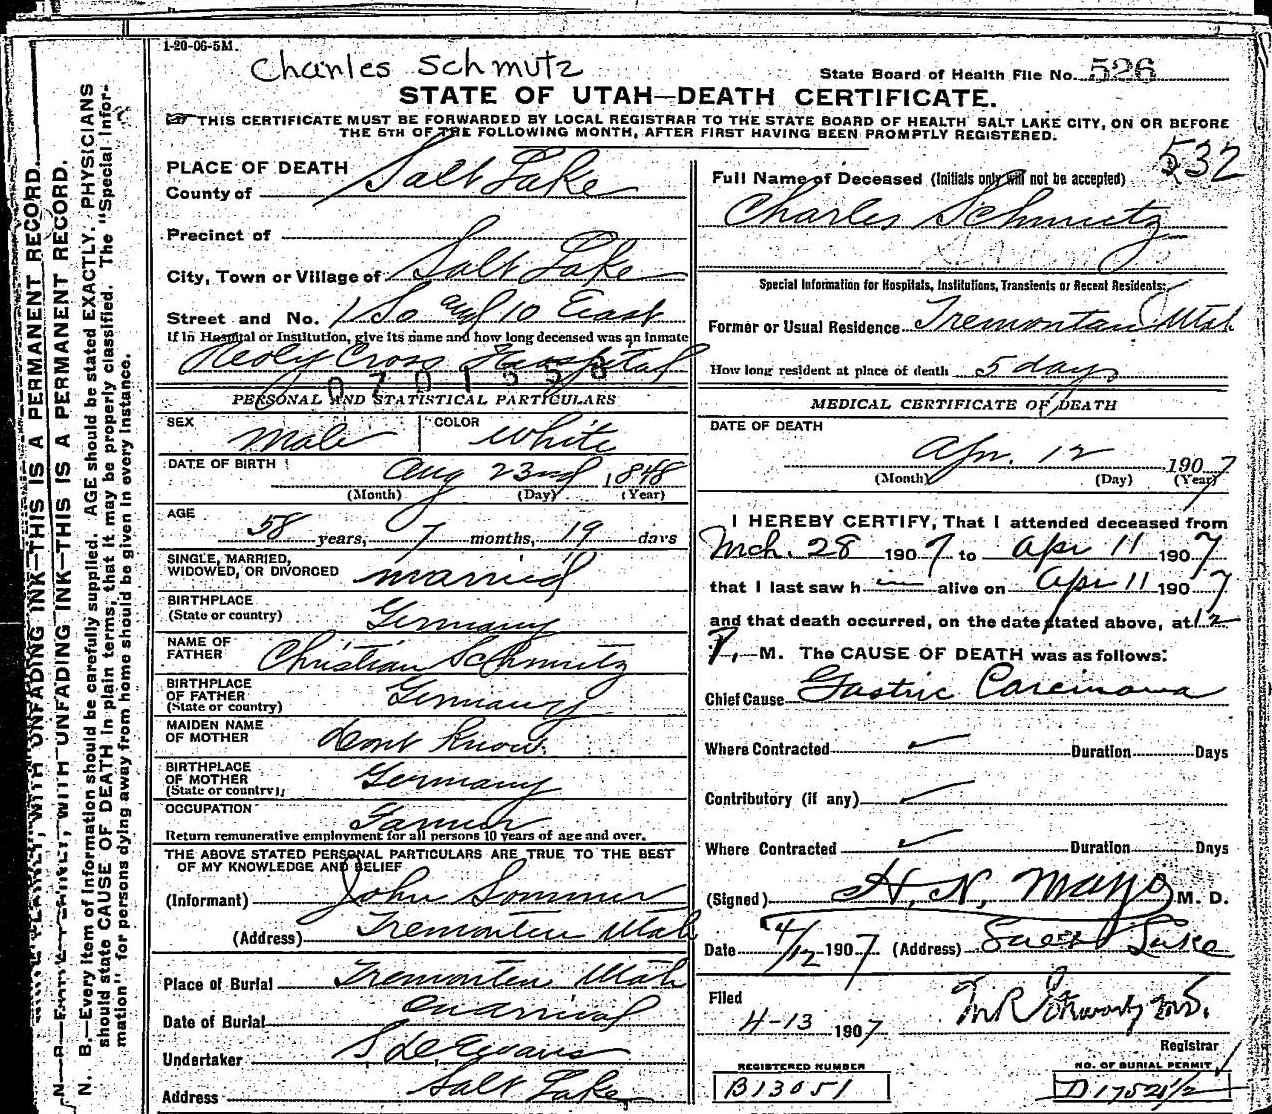 1-20-06-5M.
Charles Schmutz
State Board of Health File No. 526
STATE OF UTAH—DEATH CERTIFICATE.
THIS CERTIFICATE MUST BE FORWARDED BY LOCAL REGISTRAR TO THE STATE BOARD OF HEALTH SALT LAKE CITY, ON OR BEFORE
THE 5TH OF THE FOLLOWING MONTH, AFTER FIRST HAVING BEEN PROMPTLY REGISTERED.
532
PLACE OF DEATH
County of Salt Lake
Precinct of
City, Town or Village of Salt Lake
Street and No. 1 So and 10 East
If in Hospital or Institution, give its name and how long deceased was an inmate
Holy Cross Hospital
PERSONAL AND STATISTICAL PARTICULARS
SEX Male COLOR White
DATE OF BIRTH Aug 23rd 1848
(Month) (Day) (Year)
AGE 58 years, 7 months, 19 days
SINGLE, MARRIED,
WIDOWED, OR DIVORCED married
BIRTHPLACE
(State or country) Germany
NAME OF
FATHER Christian Schmutz
BIRTHPLACE
OF FATHER
(State or country) Germany
MAIDEN NAME
OF MOTHER dont know.
BIRTHPLACE
OF MOTHER
(State or country) Germany
OCCUPATION Farmer
Return remunerative employment for all persons 10 years of age and over.
THE ABOVE STATED PERSONAL PARTICULARS ARE TRUE TO THE BEST
OF MY KNOWLEDGE AND BELIEF
(Informant) John Sommer
(Address) Tremonton Utah
Place of Burial Tremonton Utah
Date of Burial on arrival
Undertaker S De Evans
Address Salt Lake
Full Name of Deceased (Initials only will not be accepted)
Charles Schmutz
Special Information for Hospitals, Institutions, Transients or Recent Residents:
Former or Usual Residence Tremonton Utah
How long resident at place of death 5 days
MEDICAL CERTIFICATE OF DEATH
DATE OF DEATH
Apr. 12 1907
(Month) (Day) (Year)
I HEREBY CERTIFY, That I attended deceased from
Mch. 28 1907 to Apr 11 1907
that I last saw h im alive on Apr 11 1907
and that death occurred, on the date stated above, at 12
P. M. The CAUSE OF DEATH was as follows:
Chief Cause Gastric Carcinoma
Where Contracted Duration Days
Contributory (if any)
Where Contracted Duration Days
(Signed) H. N. Mayo M. D.
Date 4/12 1907 (Address) Salt Lake
Filed
4-13 1907
Registrar
REGISTERED NUMBER
B13051
NO. OF BURIAL PERMIT
D 17521/2
N. B.—Every item of information should be carefully supplied. AGE should be stated EXACTLY. PHYSICIANS
should state CAUSE OF DEATH in plain terms, that it may be properly classified. The "Special Infor-
mation" for persons dying away from home should be given in every instance.